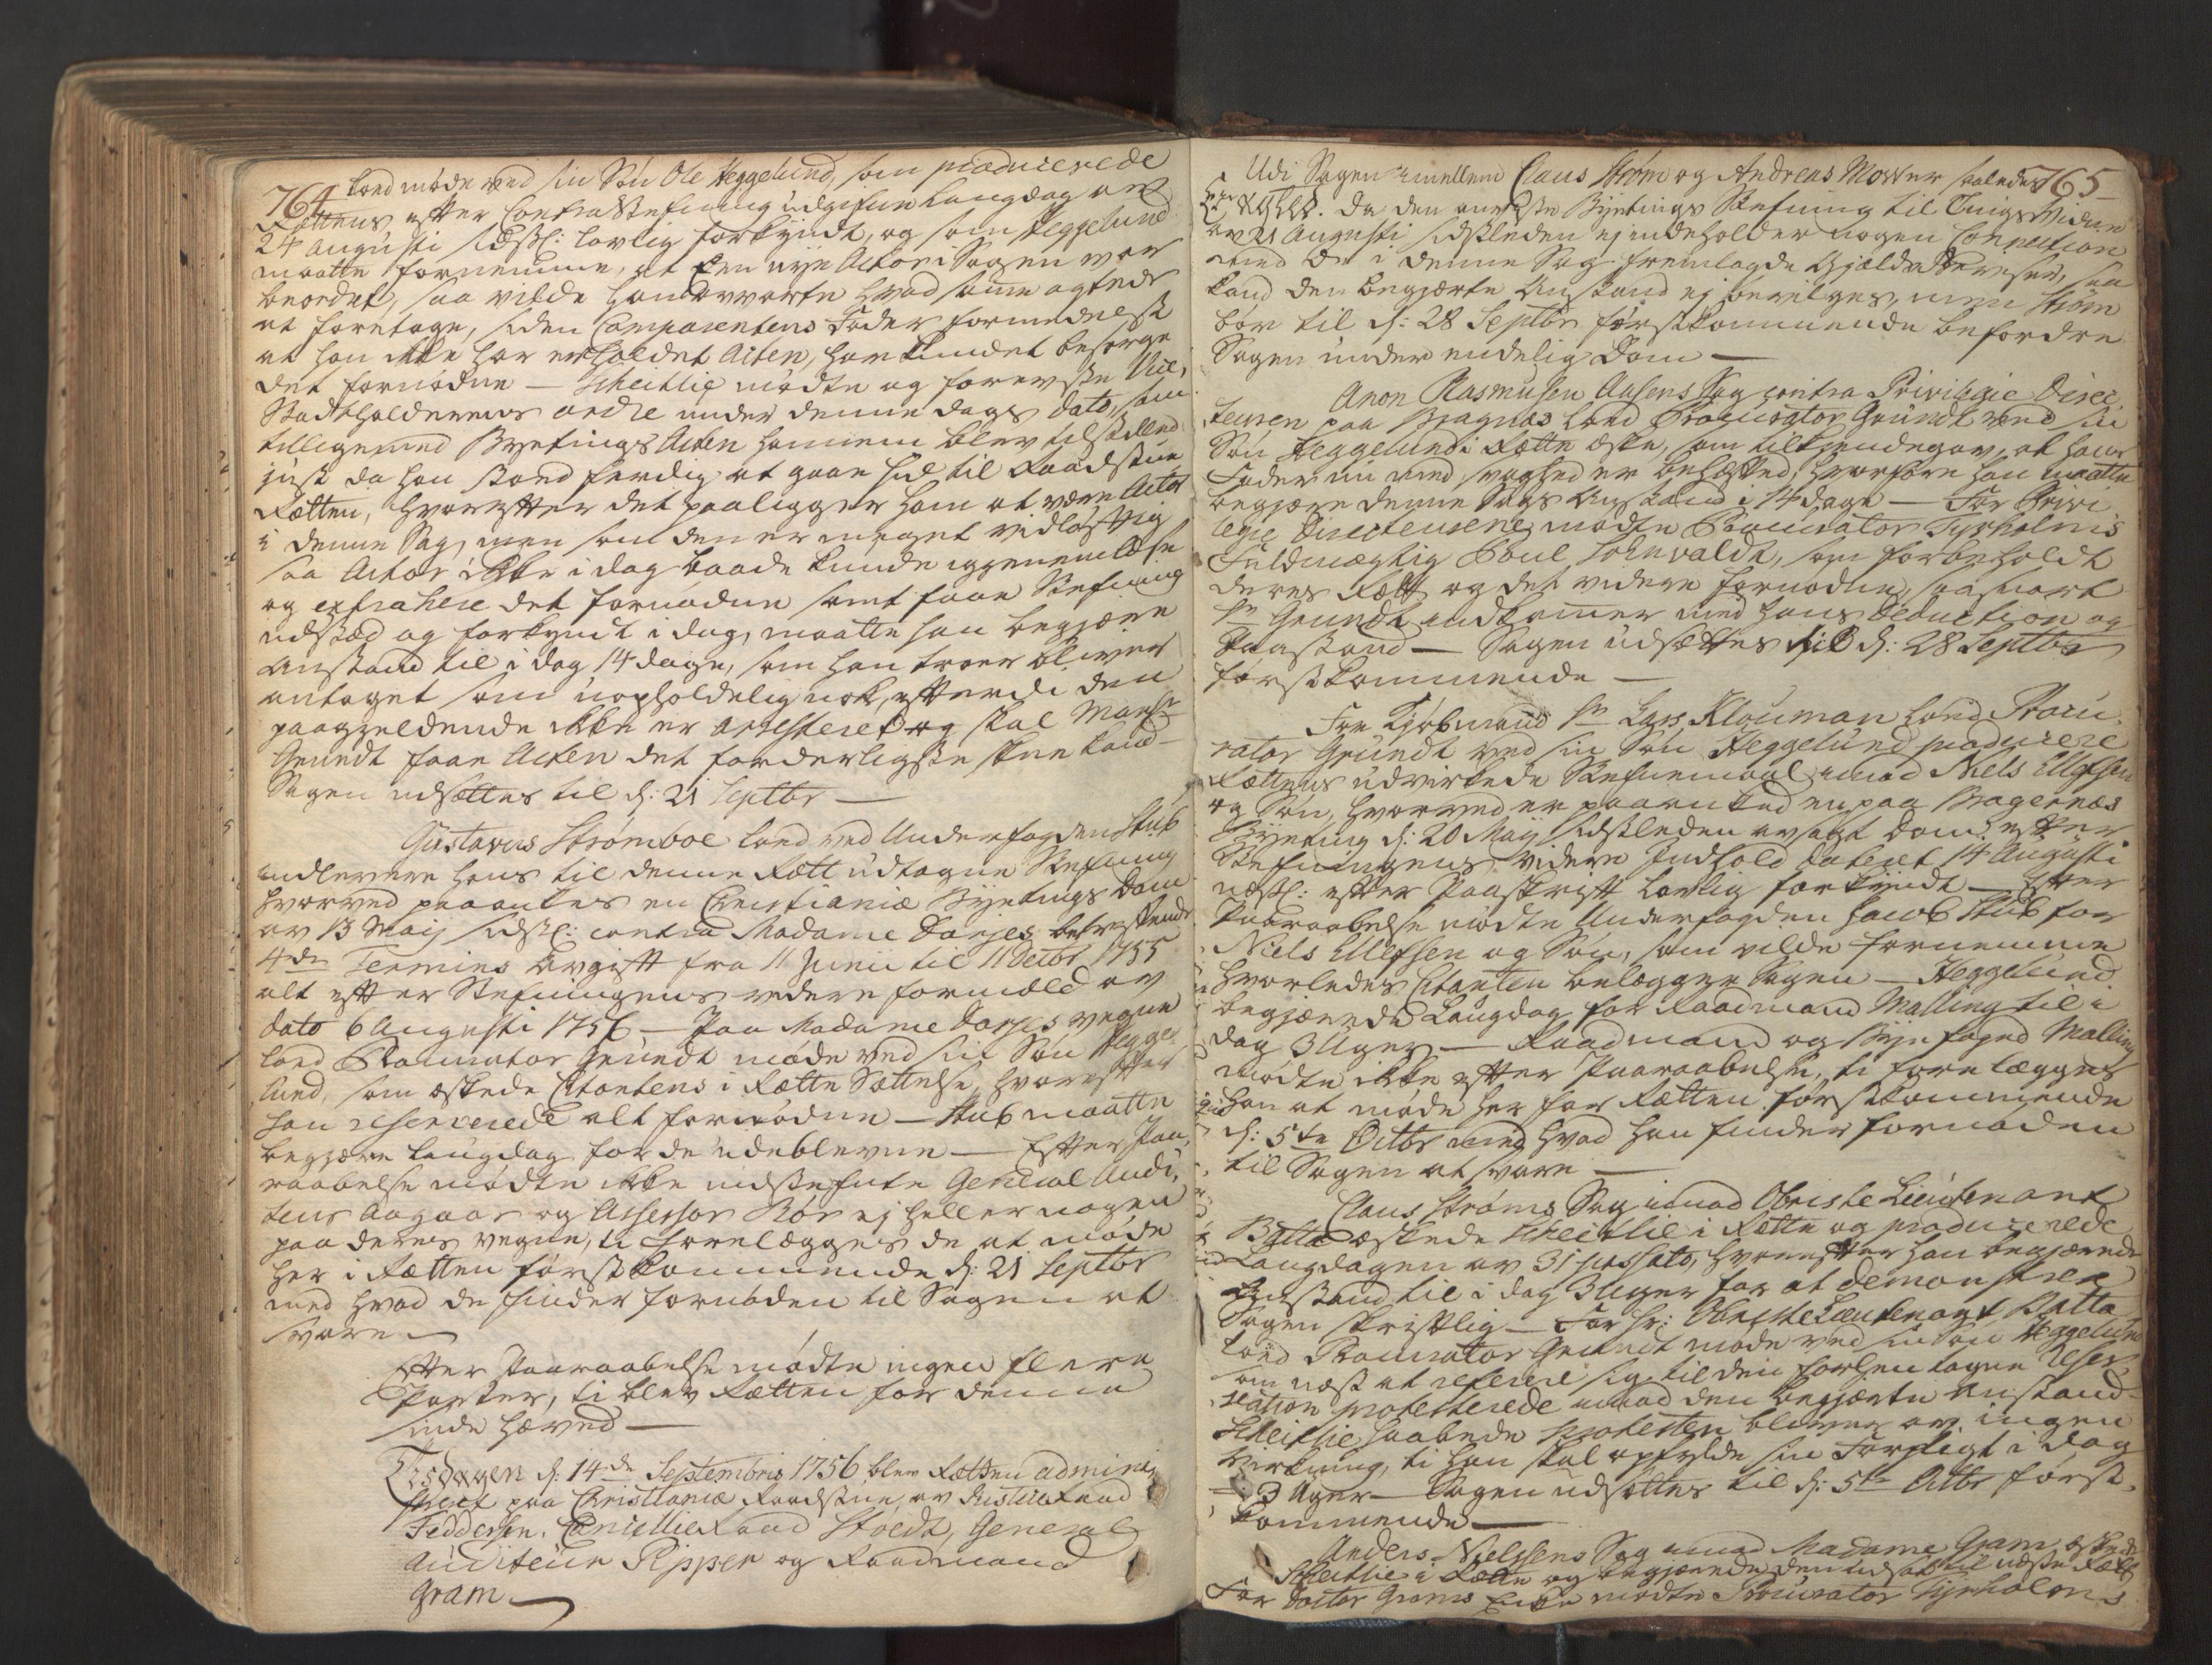 764
lod møde ved sin Søn Ole Heggelund, som producerede
Rættens efter Contra Stefning udgifne Laugdag af
24 Augusti sidstl: lovlig forkyndt, og som Heggelund
maatte fornemme, at een nye Actor i Sagen var
beordret, saa vilde han avvarte hvad samme agtede
at foretage, siden Comparentens Fader formedelst
at han ikke har erholdet Acten, har kundet besorge
det fornødne — Scheitlie mødte og foreviste Vice-
Statholderens ordre under denne dags dato, som
tilligemed Byetings Acten hannem blev tilstilled
just da han stoed færdig at gaae hid til Raadstue
Rætten, hvorefter det paaligger ham at være Actor
i denne Sag, men som den er meget vidløftig
saa Actor ikke i dag baade kunde igjennemlæse
og extrahere det fornødne samt faae Stefning
udstæd og forkyndt i dag, maatte han begjære
Anstand til i dag 14 dage, som han troer bliver
antaget som uopholdelig nok, efterdi den
paagjeldende ikke er arresteret og skal Monsr
Grundt faae Acten det forderligste skee kand —
Sagen udsættes til d: 21 Septbr —
Gustavus Strømboe lod ved Underfogden Stub
indlevere hans til denne Rætt udtagne Stefning
hvorved paaankes en Christianiæ Byetings Dom
av 13 Maij sidstl: contra Madame Dorjes betreffende
4de Termins Avgift fra 11 Junii til 11 Octbr 1755
alt efter Stefningens videre formæld av
dato 6 Augusti 1756 — Paa Madame Dorjes vegne
lod Procurator Grundt møde ved sin Søn Hegge-
lund, som æskede Citantens i Rætte Sættelse, hvorefter
han reserverede alt fornødne — Stub maatte
begjære Laugdag for de udeblevne — Efter Paa-
raabelse mødte ikke indstefnte General Audi-
teur Aagaar og Assessor Bør ej heller nogen
paa deres vegne, ti forelægges de at møde
her i Rætten førstkommende d: 21 Septbr
med hvad de finder fornøden til Sagen at
svare —
Efter Paaraabelse mødte ingen fleere
Parter, ti blev Rætten for denne
sinde hæved —
Tirsdagen d: 14de Septembris 1756 blev Rætten admini-
streret paa Christianiæ Raadstue av Justitz Raad
Feddersen, Cancellie Raad Stoedt, General
Auditeur Pipper og Raadmand
Gram —
765
Udi Sagen imellem Claus Strøm og Andreas Morser saaledes
. Da den anviiste Byetings Stefning til Tings Vidne
av 21 Augusti sidstleden ej indeholder nogen Connection
med de i denne Sag fremlagde Gjelds Beviser, saa
kand den begjærte Anstand ej bevilges, men Strøm
bør til d: 28 Septbr førstkommende befordre
Sagen under endelig Dom —
Anon Rasmusen Aasens Sag contra Privilegie Direc-
teuren paa Bragnæs lod Procurator Grundt ved sin
Søn Heggelund i Rætte æske, som tilkjendegav, at hans
Fader nu med svaghed er behæftted, hvorfore han maatte
begjære denne Sags Anstand i 14 dage — For Privi-
legie Directeurene mødte Procurator Tyrholms
Fuldmægtig Poul Tohnvaldt, som forbeholdt
deres Rætt og det videre fornødne, saasnart
Sr Grundt indkommer med hans Deduction og
Paastand — Sagen udsættes til d: 28 Septbr
førstkommende —
For Kjøbmand Sr Lars Klouman lod Procu-
rator Grundt ved sin Søn Heggelund producere
Rættens udvirkede Stefnemaal imod Niels Ellefsen
og Søn, hvorved er paaanked en paa Bragernæs
Byeting d: 20 Maij sidstleden avsagt Dom, efter
Stefningens videre Indhold dateret 14 Augusti
næstl: efter Paaskrift lovlig forkyndt — Efter
Paaraabelse mødte Underfogden Jacob Stub for
Niels Ellefsen og Søn, som vilde fornemme
hvorledes Citanten belægger Sagen — Heggelund
begjærede Laugdag for Raadmand Malling til i
dag 3 Uger — Raadmand og Byefoged Malling
mødte ikke efter Paaraabelse, ti forelægges
han at møde her for Rætten førstkommende
d: 5te Octbr med hvad han finder fornøden
til Sagen at svare —
Claus Strøms Sag imod Obriste Lieutenant
Batta æskede Scheitlie i Rætte og producerede
Laugdagen av 31 passato, hvorefter han begjærede
Anstand til i dag 3 Uger for at demonstrere
Sagen skriftlig — For Hr: Obriste Lieutenant Batta
lod Procurator Grundt møde ved sin Søn Heggelund
som næst at referere sig til den forhen tagne Reser-
vation protesterede imod den begjærte Anstand
Scheitlie haabede protesten bliver av ingen
virkning, ti han skal opfylde sin Forpligt i dag
3 Uger — Sagen udsættes til d: 5te Octbr først-
kommende —
Anders Nielssens Sag imod Madame Gram, æskede
Scheitlie i Rætte og begjærede den udsat til næste Rætt
For Doctor Grams Enke mødte Procurator Tyrholms